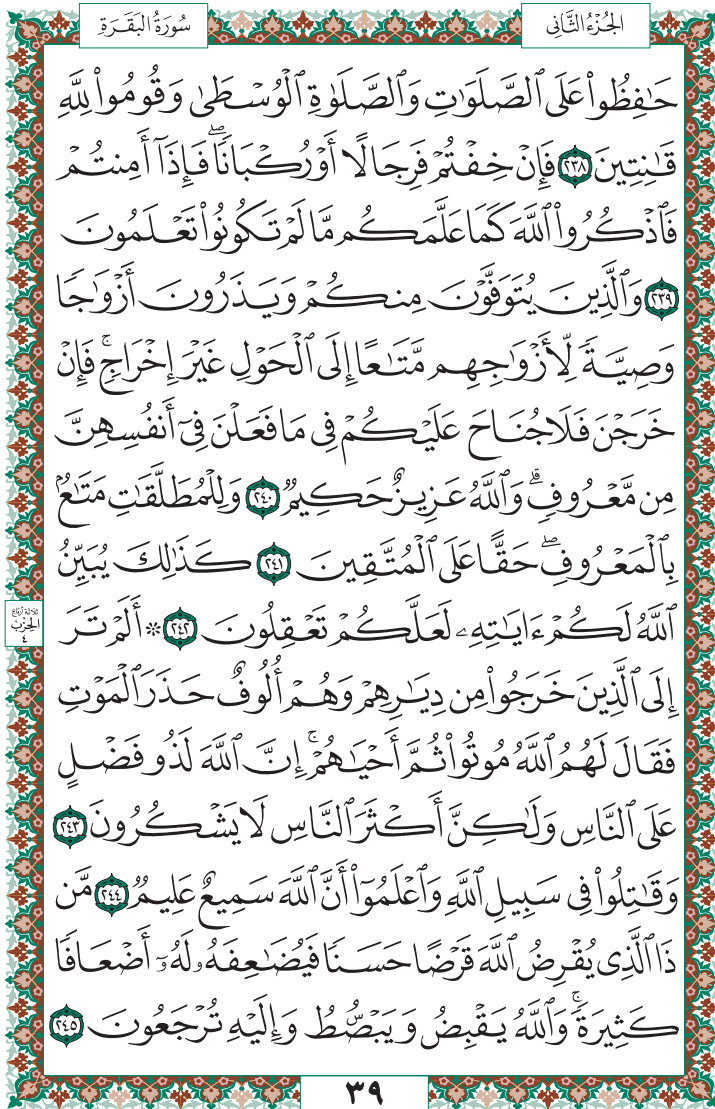 الجُزْءُ الثَّانِي
سُورَةُ البَقَرَةِ
حَـٰفِظُوا۟ عَلَى ٱلصَّلَوَٰتِ وَٱلصَّلَوٰةِ ٱلْوُسْطَىٰ وَقُومُوا۟ لِلَّهِ
قَـٰنِتِينَ ٢٣٨ فَإِنْ خِفْتُمْ فَرِجَالًا أَوْ رُكْبَانًا ۖ فَإِذَآ أَمِنتُمْ
فَٱذْكُرُوا۟ ٱللَّهَ كَمَا عَلَّمَكُم مَّا لَمْ تَكُونُوا۟ تَعْلَمُونَ
٢٣٩ وَٱلَّذِينَ يُتَوَفَّوْنَ مِنكُمْ وَيَذَرُونَ أَزْوَٰجًا
وَصِيَّةً لِّأَزْوَٰجِهِم مَّتَـٰعًا إِلَى ٱلْحَوْلِ غَيْرَ إِخْرَاجٍ ۚ فَإِنْ
خَرَجْنَ فَلَا جُنَاحَ عَلَيْكُمْ فِى مَا فَعَلْنَ فِىٓ أَنفُسِهِنَّ
مِن مَّعْرُوفٍ ۗ وَٱللَّهُ عَزِيزٌ حَكِيمٌ ٢٤٠ وَلِلْمُطَلَّقَـٰتِ مَتَـٰعٌۢ
بِٱلْمَعْرُوفِ ۖ حَقًّا عَلَى ٱلْمُتَّقِينَ ٢٤١ كَذَٰلِكَ يُبَيِّنُ
ٱللَّهُ لَكُمْ ءَايَـٰتِهِۦ لَعَلَّكُمْ تَعْقِلُونَ ٢٤٢ ۞ أَلَمْ تَرَ
ثلاثة أرباع
الحِزْب
٤
إِلَى ٱلَّذِينَ خَرَجُوا۟ مِن دِيَـٰرِهِمْ وَهُمْ أُلُوفٌ حَذَرَ ٱلْمَوْتِ
فَقَالَ لَهُمُ ٱللَّهُ مُوتُوا۟ ثُمَّ أَحْيَـٰهُمْ ۚ إِنَّ ٱللَّهَ لَذُو فَضْلٍ
عَلَى ٱلنَّاسِ وَلَـٰكِنَّ أَكْثَرَ ٱلنَّاسِ لَا يَشْكُرُونَ ٢٤٣
وَقَـٰتِلُوا۟ فِى سَبِيلِ ٱللَّهِ وَٱعْلَمُوٓا۟ أَنَّ ٱللَّهَ سَمِيعٌ عَلِيمٌ ٢٤٤ مَّن
ذَا ٱلَّذِى يُقْرِضُ ٱللَّهَ قَرْضًا حَسَنًا فَيُضَـٰعِفَهُۥ لَهُۥٓ أَضْعَافًا
كَثِيرَةً ۚ وَٱللَّهُ يَقْبِضُ وَيَبْصُۜطُ وَإِلَيْهِ تُرْجَعُونَ ٢٤٥
٣٩